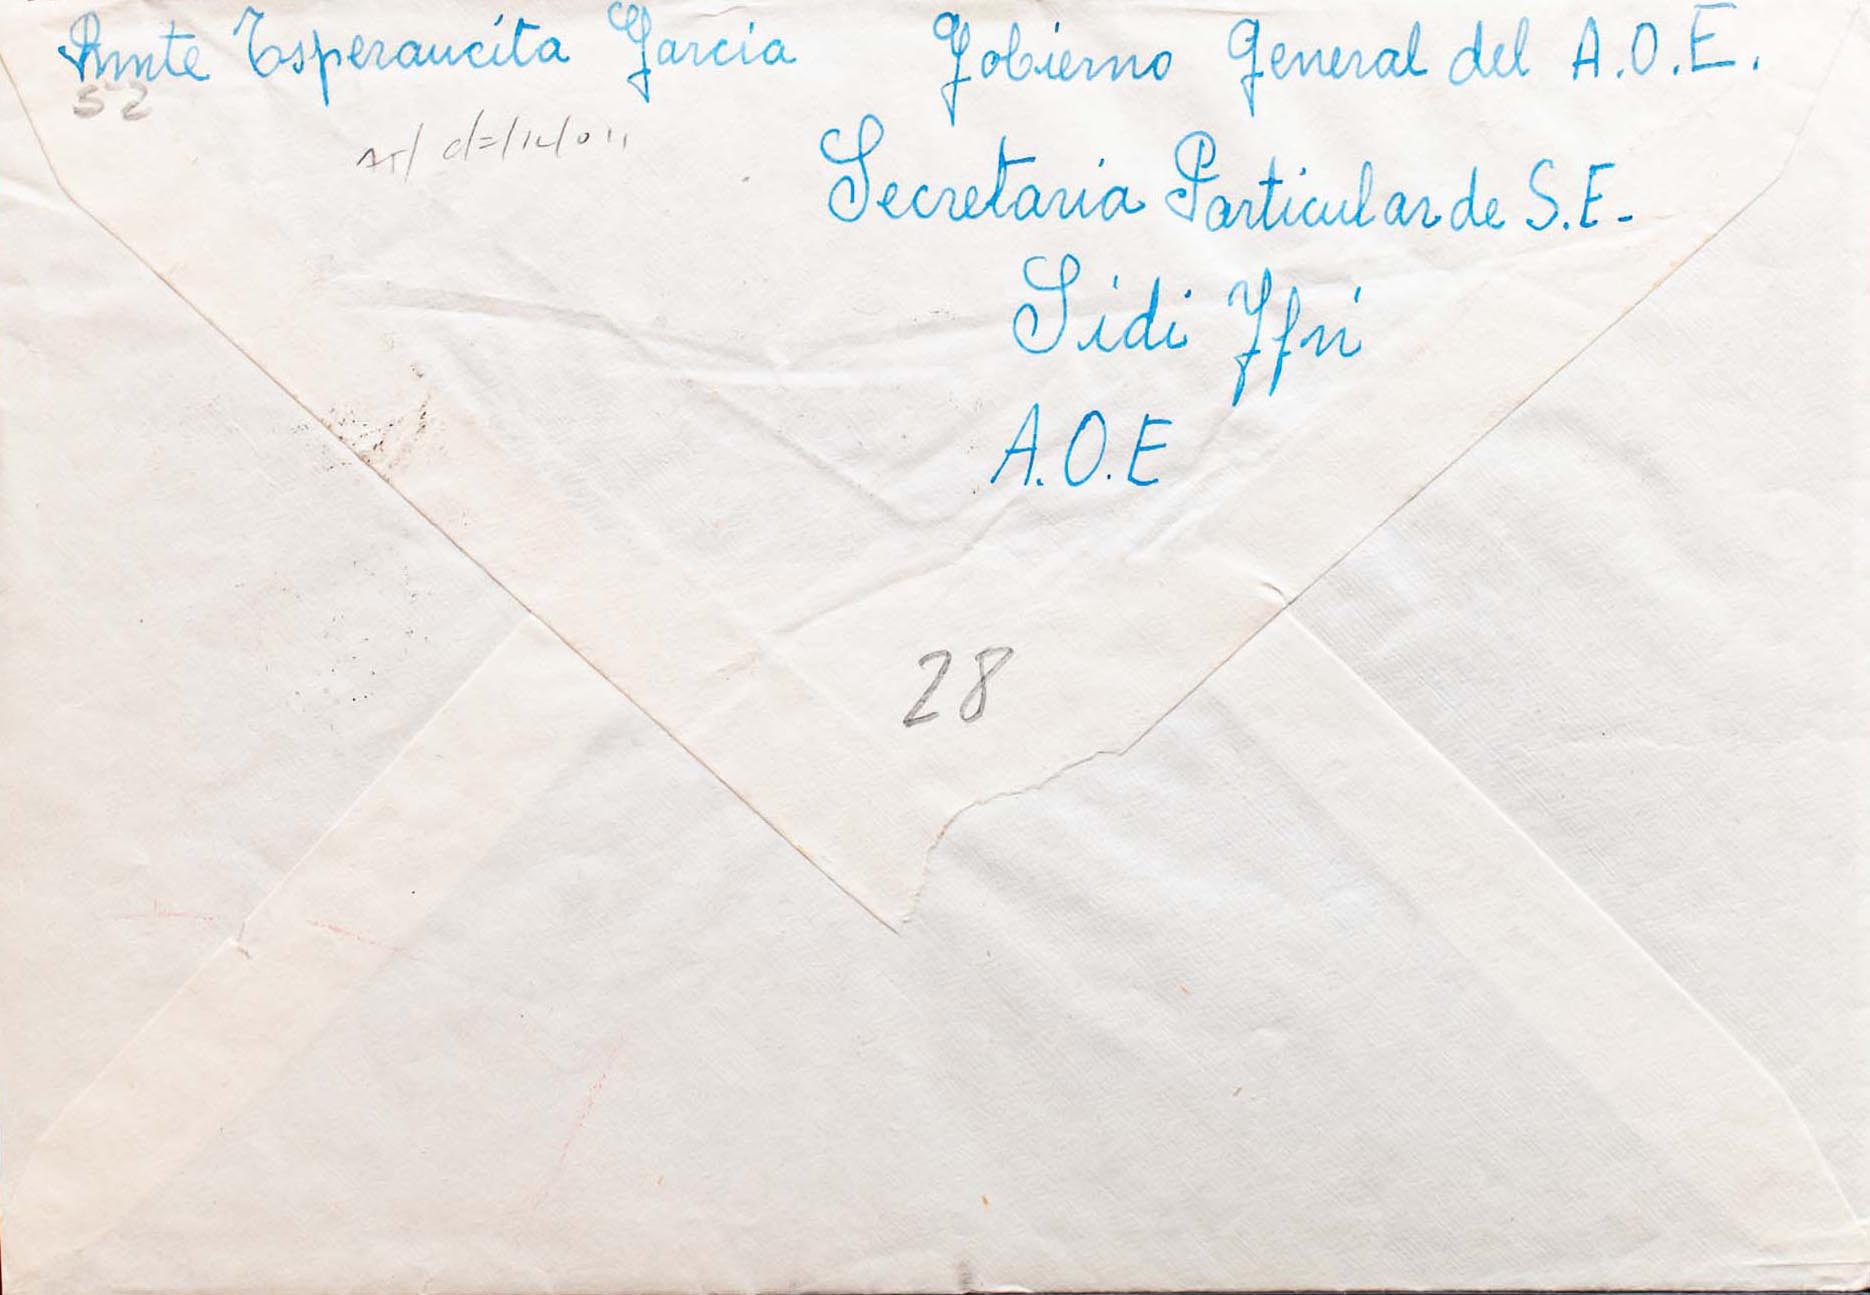 Rmte Esperancita Garcia Gobierno General del A.O.E.
52
Secretaria Particular de S.E-
Sidi Yfni
A.O.E
28